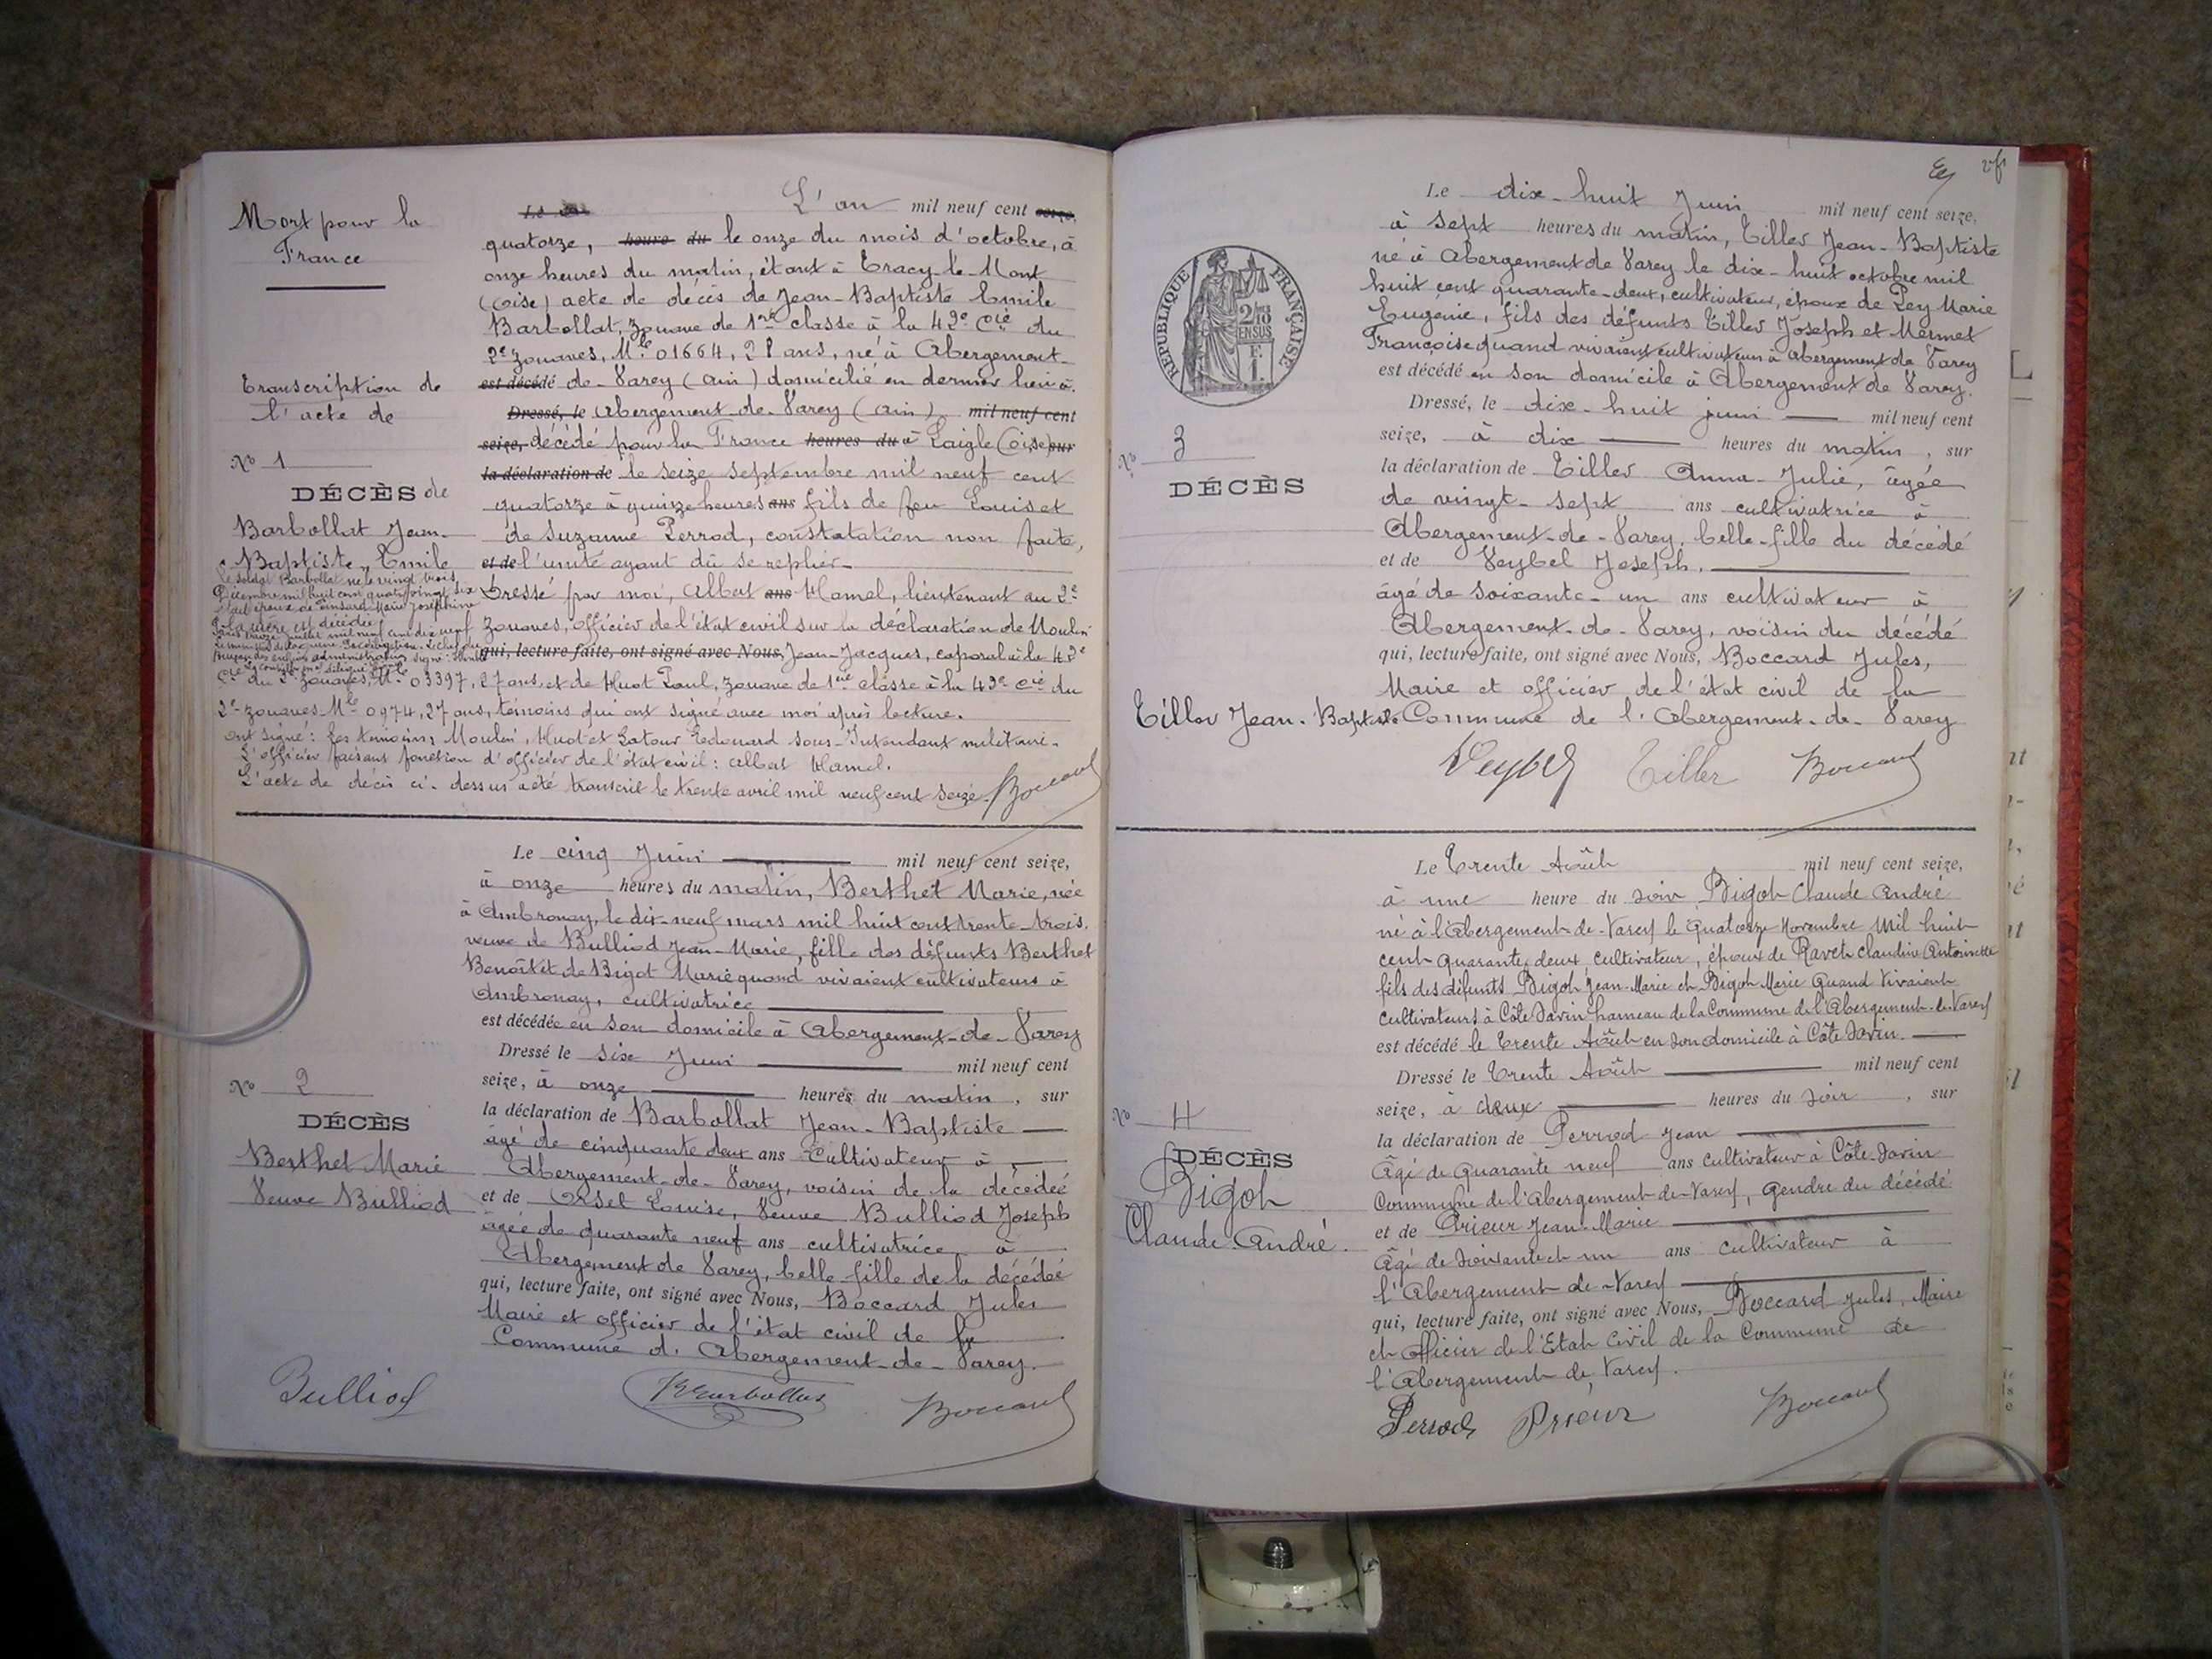 Mort pour la
France
Transcription de
l'acte de
No 1
DÉCÈS de
Barbollat Jean-
Baptiste, Emile
Le soldat Barbollat né le vingt trois
Décembre mil huit cent quatre vingt six
était époux de Marie Joséphine
L'an mil neuf cent seize,
quatorze, heure du le onze du mois d'octobre, à
onze heures du matin, étant à Tracy-le-Mont
(Oise) acte de décès de Jean-Baptiste Emile
Barbollat, zouave de 1re classe à la 43e Cie du
2e zouaves, Mle 01664, 28 ans, né à Abergement-
est décédé de-Varey (Ain) domicilié en dernier lieu à
Dressé, le Abergement-de-Varey (Ain) mil neuf cent
seize, décédé pour la France heures du à Laigle (Oise) sur
la déclaration de le seize septembre mil neuf cent
quatorze à quinze heures ans fils de feu Louis et
de Suzanne Perrod, constatation non faite,
et de l'unité ayant dû se replier-
Dressé par moi, Albert ans Hamel, lieutenant au 2e
zouaves, officier de l'état civil sur la déclaration de Moulin
qui, lecture faite, ont signé avec Nous, Jean-Jacques, caporal à la 43e
Cie du 2e zouaves, Mle 03397, 27 ans, et de Huot Paul, zouave de 1re classe à la 43e Cie du
2e zouaves Mle 0974, 27 ans, témoins qui ont signé avec moi après lecture.
Ont signé : Les témoins, Moulin, Huot et Latour Edouard sous-Intendant militaire.
L'officier faisant fonction d'officier de l'état civil : Albert Hamel.
L'acte de décès ci-dessus a été transcrit le trente avril mil neuf cent seize. Boccard
No 2
DÉCÈS
Berthet Marie
Veuve Bulliod
Le cinq Juin mil neuf cent seize,
à onze heures du matin, Berthet Marie, née
à Ambronay, le dix-neuf mars mil huit cent trente-trois,
veuve de Bulliod Jean-Marie, fille des défunts Berthet
Benoît et de Bigot Marie quand vivaient cultivateurs à
Ambronay, cultivatrice
est décédée en son domicile à Abergement-de-Varey
Dressé le six Juin mil neuf cent
seize, à onze heures du matin, sur
la déclaration de Barbollat Jean-Baptiste
âgé de cinquante deux ans Cultivateur à
Abergement-de-Varey, voisin de la décédée
et de Orset Louise, Veuve Bulliod Joseph
âgée de quarante neuf ans cultivatrice à
Abergement de Varey, belle fille de la décédée
qui, lecture faite, ont signé avec Nous, Boccard Jules
Maire et officier de l'état civil de la
Commune d'Abergement-de-Varey.
Bulliod Barbollat Boccard
RÉPUBLIQUE FRANÇAISE
No 3
DÉCÈS
Tiller Jean-Baptiste
Le dix-huit Juin mil neuf cent seize,
à sept heures du matin, Tiller Jean-Baptiste
né à Abergement de Varey le dix-huit octobre mil
huit cent quarante-deux, cultivateur, époux de Pey Marie
Eugénie, fils des défunts Tiller Joseph et Mermet
Françoise quand vivaient cultivateurs à Abergement de Varey
est décédé en son domicile à Abergement de Varey.
Dressé, le dix-huit juin mil neuf cent
seize, à dix heures du matin, sur
la déclaration de Tiller Anna-Julie, âgée
de vingt-sept ans cultivatrice à
Abergement-de-Varey, belle-fille du décédé
et de Veybel Joseph.
âgé de soixante-un ans cultivateur à
Abergement-de-Varey, voisin du décédé
qui, lecture faite, ont signé avec Nous, Boccard Jules,
Maire et officier de l'état civil de la
Commune de l'Abergement-de-Varey
Veybel Tiller Boccard
No 4
DÉCÈS
Bigot
Claude André.
Le Trente Août mil neuf cent seize,
à une heure du soir Bigot Claude André
né à l'Abergement-de-Varey le Quatorze Novembre Mil huit
cent quarante deux, cultivateur, époux de Ravet Claudine Antoinette
fils des défunts Bigot Jean-Marie et Bigot Marie Quand Vivaient
Cultivateurs à Côte Savin hameau de la Commune de l'Abergement-de-Varey
est décédé le Trente Août en son domicile à Côte Savin.
Dressé le Trente Août mil neuf cent
seize, à deux heures du soir, sur
la déclaration de Perrod Jean
Âgé de Quarante neuf ans cultivateur à Côte Savin
Commune de l'Abergement-de-Varey, gendre du décédé
et de Prieur Jean-Marie
Âgé de soixante et un ans cultivateur à
l'Abergement de-Varey
qui, lecture faite, ont signé avec Nous, Boccard Jules, Maire
et Officier de l'Etat Civil de la Commune de
l'Abergement de Varey.
Perrod Prieur Boccard